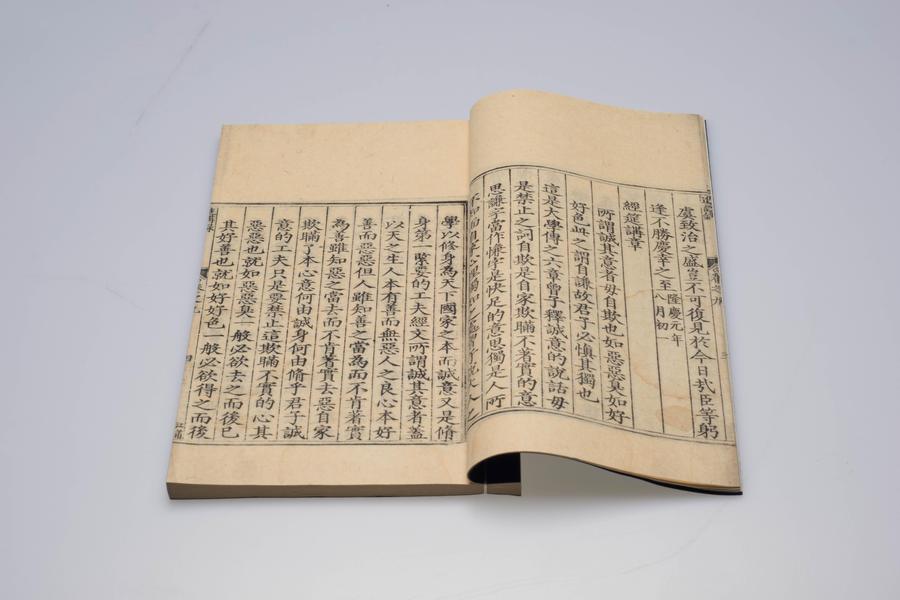 虞致治之盛豈不可復見於今日㢤臣等躬
逢之不勝慶幸之至
隆慶元年
八月初一
經筵講章
所謂誠其意者毋自欺也如惡惡臭如好
好色此之謂自謙故君子必慎其獨也
這是大學傳之六章曾子釋誠意的說話毋
是禁止之詞自欺是自家欺瞞不著實的意
思謙字當作慊字是快足的意思獨是人所
學以修身為天下國家之本而誠意又是脩
身第一緊要的工夫經文所謂誠其意者蓋
以天之生人本有善而無惡人之良心本好
善而惡惡但人雖知善之當為而不肯著實
為善雖知惡之當去而不肯著實去惡自家
欺瞞了本心意何由誠身何由脩乎君子誠
意的工夫只是要禁止這欺瞞不實的心其
惡惡也就如惡惡臭一般必欲去之而後已
其好善也就如好好色一般必欲得之而後